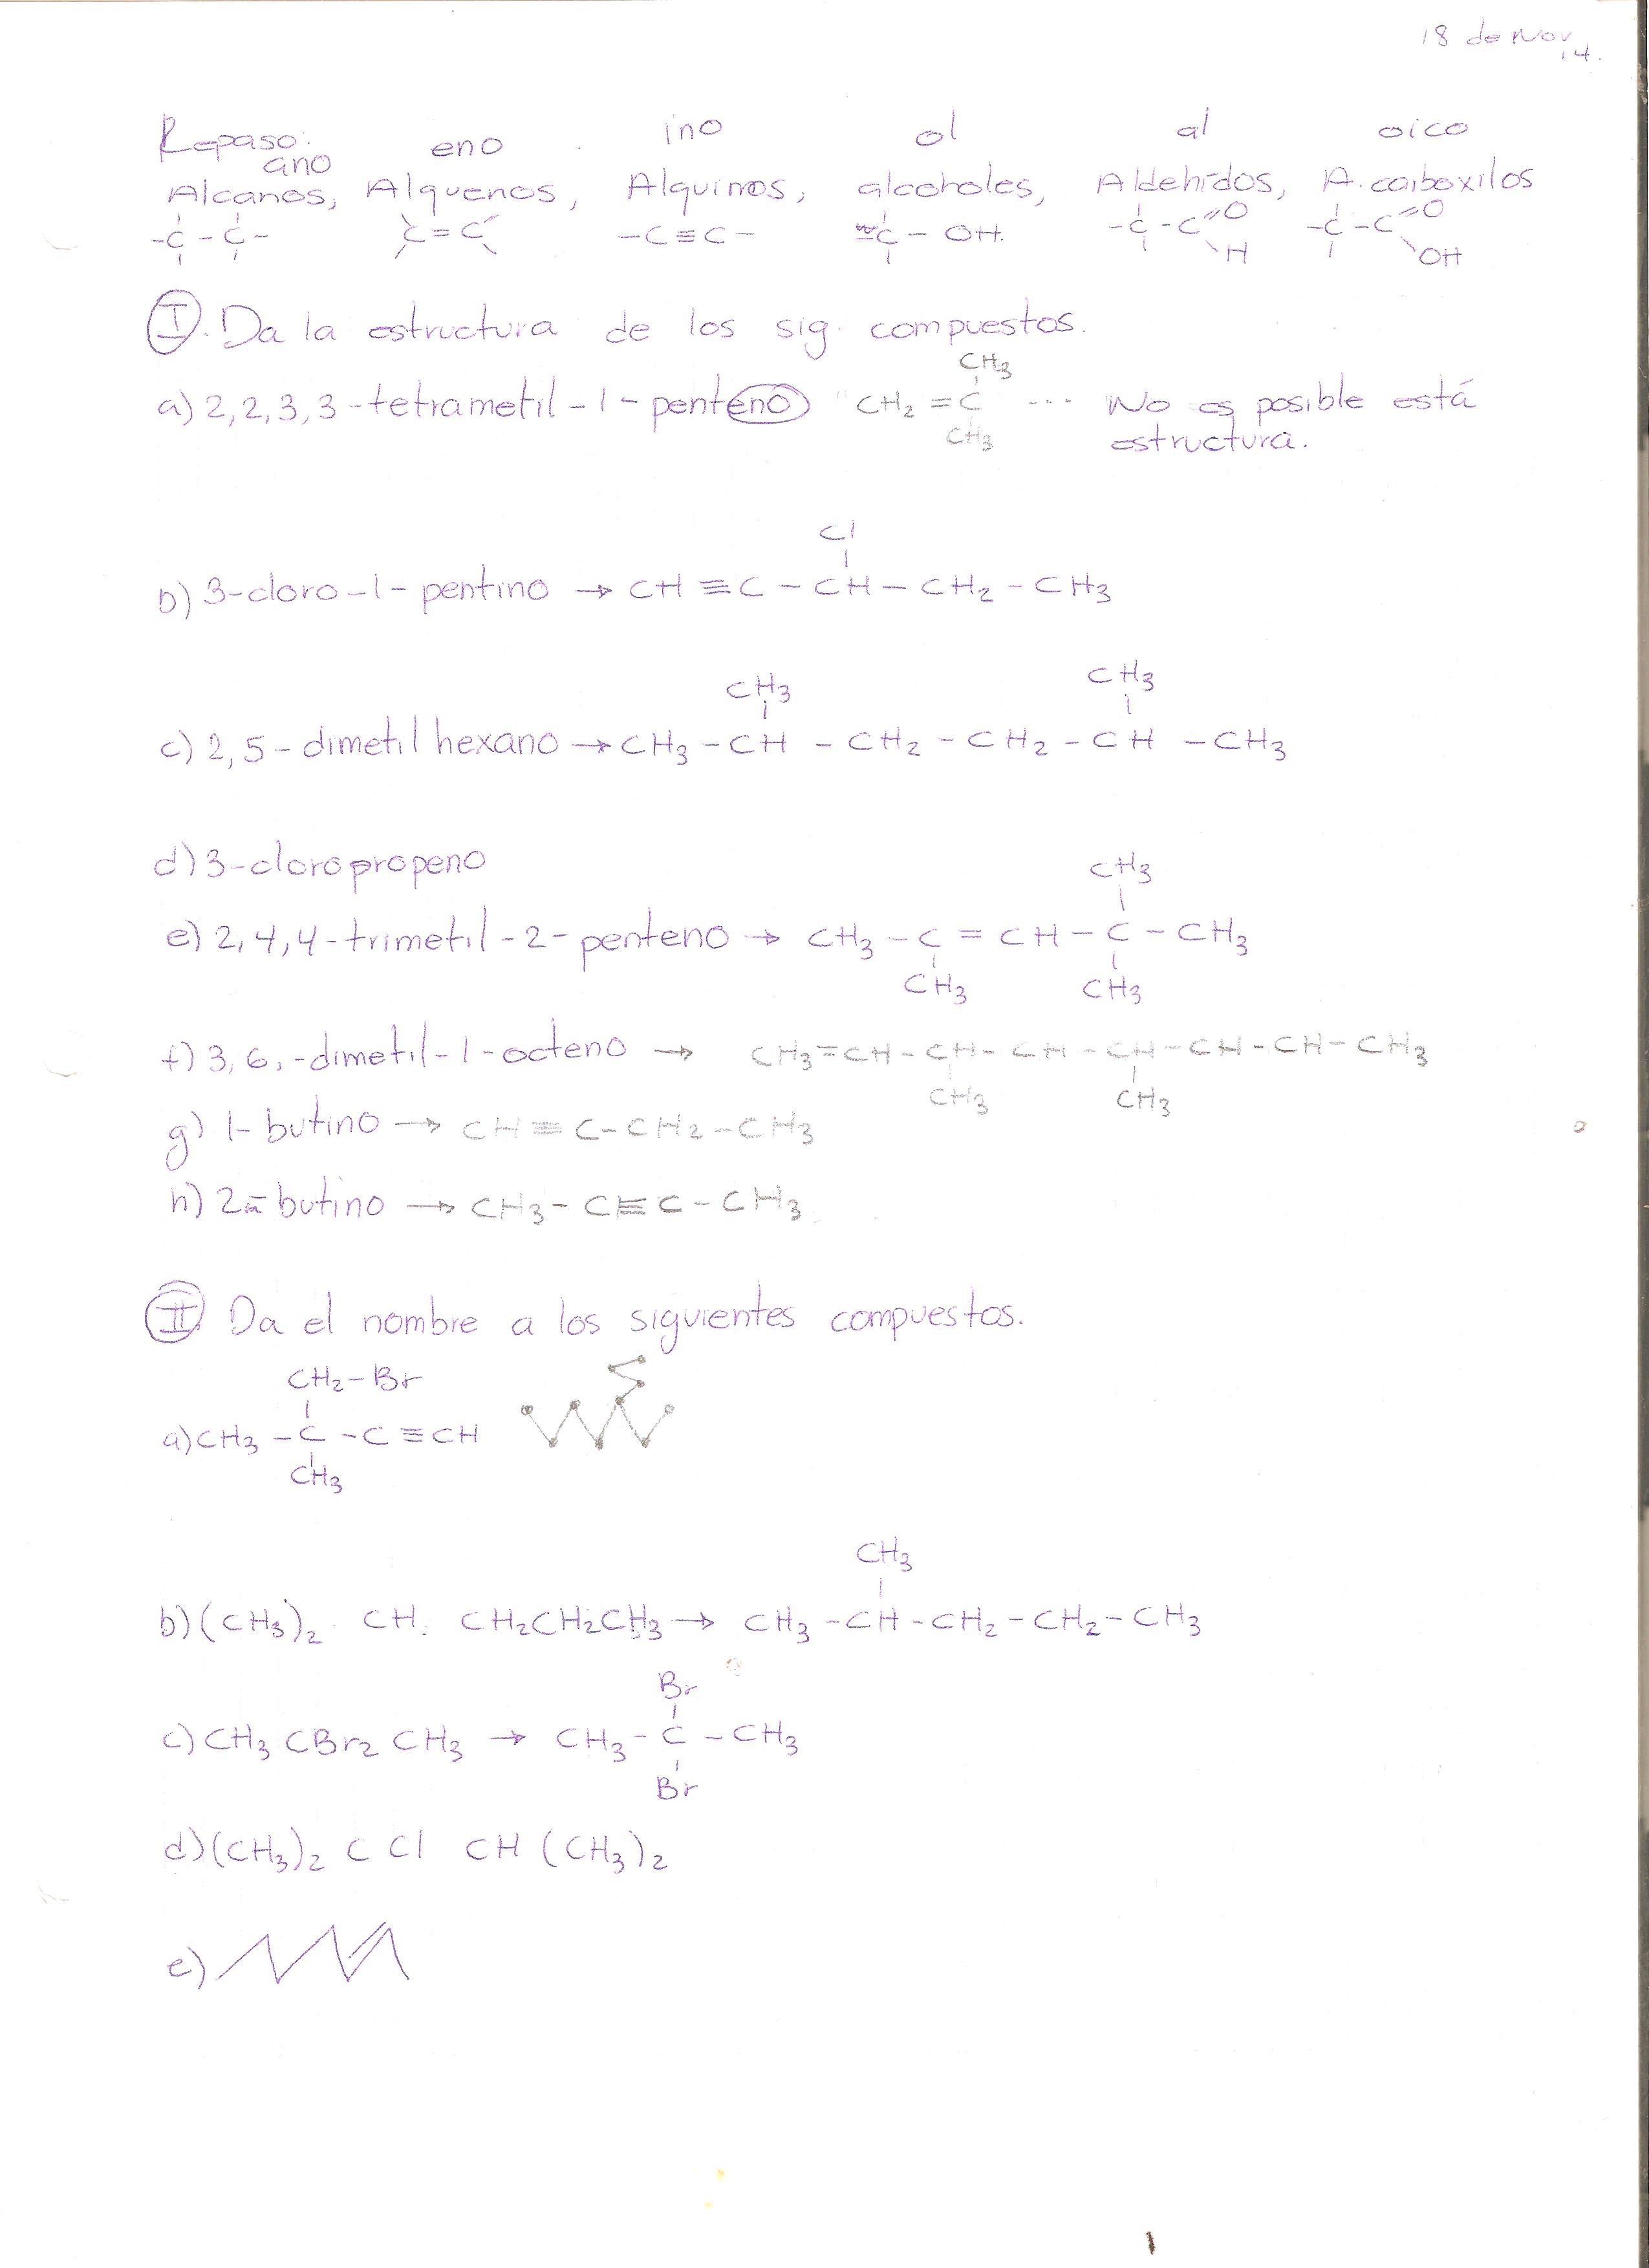 18 de Nov, 14.
Repaso:
ano eno ino ol al oico
Alcanos, Alquenos, Alquinos, alcoholes, Aldehidos, A. carboxilos
-C-C- C=C -C≡C- -C-OH. -C-C=O -C-C=O
H OH
I. Da la estructura de los sig. compuestos.
CH3
a) 2,2,3,3-tetrametil-1-penteno CH2=C ... No es posible está
CH3 estructura.
Cl
b) 3-cloro-1-pentino → CH≡C-CH-CH2-CH3
CH3 CH3
c) 2,5-dimetil hexano → CH3-CH-CH2-CH2-CH-CH3
d) 3-cloropropeno
CH3
e) 2,4,4-trimetil-2-penteno → CH3-C=CH-C-CH3
CH3 CH3
f) 3,6,-dimetil-1-octeno → CH3=CH-CH-CH-CH-CH-CH-CH3
CH3 CH3
g) 1-butino → CH≡C-CH2-CH3
h) 2-butino → CH3-C≡C-CH3
II. Da el nombre a los siguientes compuestos.
CH2-Br
a) CH3-C-C≡CH
CH3
CH3
b) (CH3)2 CH. CH2CH2CH3 → CH3-CH-CH2-CH2-CH3
Br
c) CH3 CBr2 CH3 → CH3-C-CH3
Br
d) (CH3)2 C Cl CH (CH3)2
e)